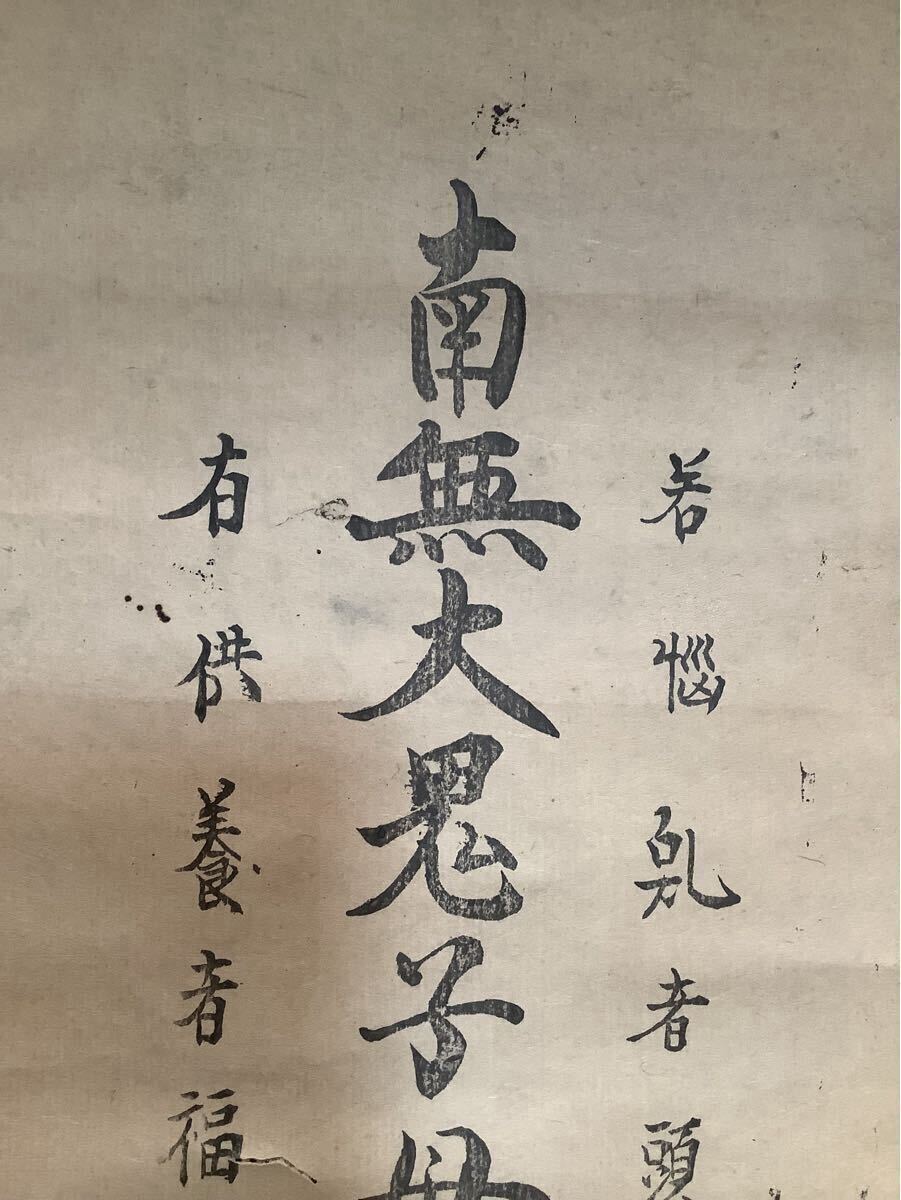 若惱乱者頭
南無大鬼子母
有供養者福